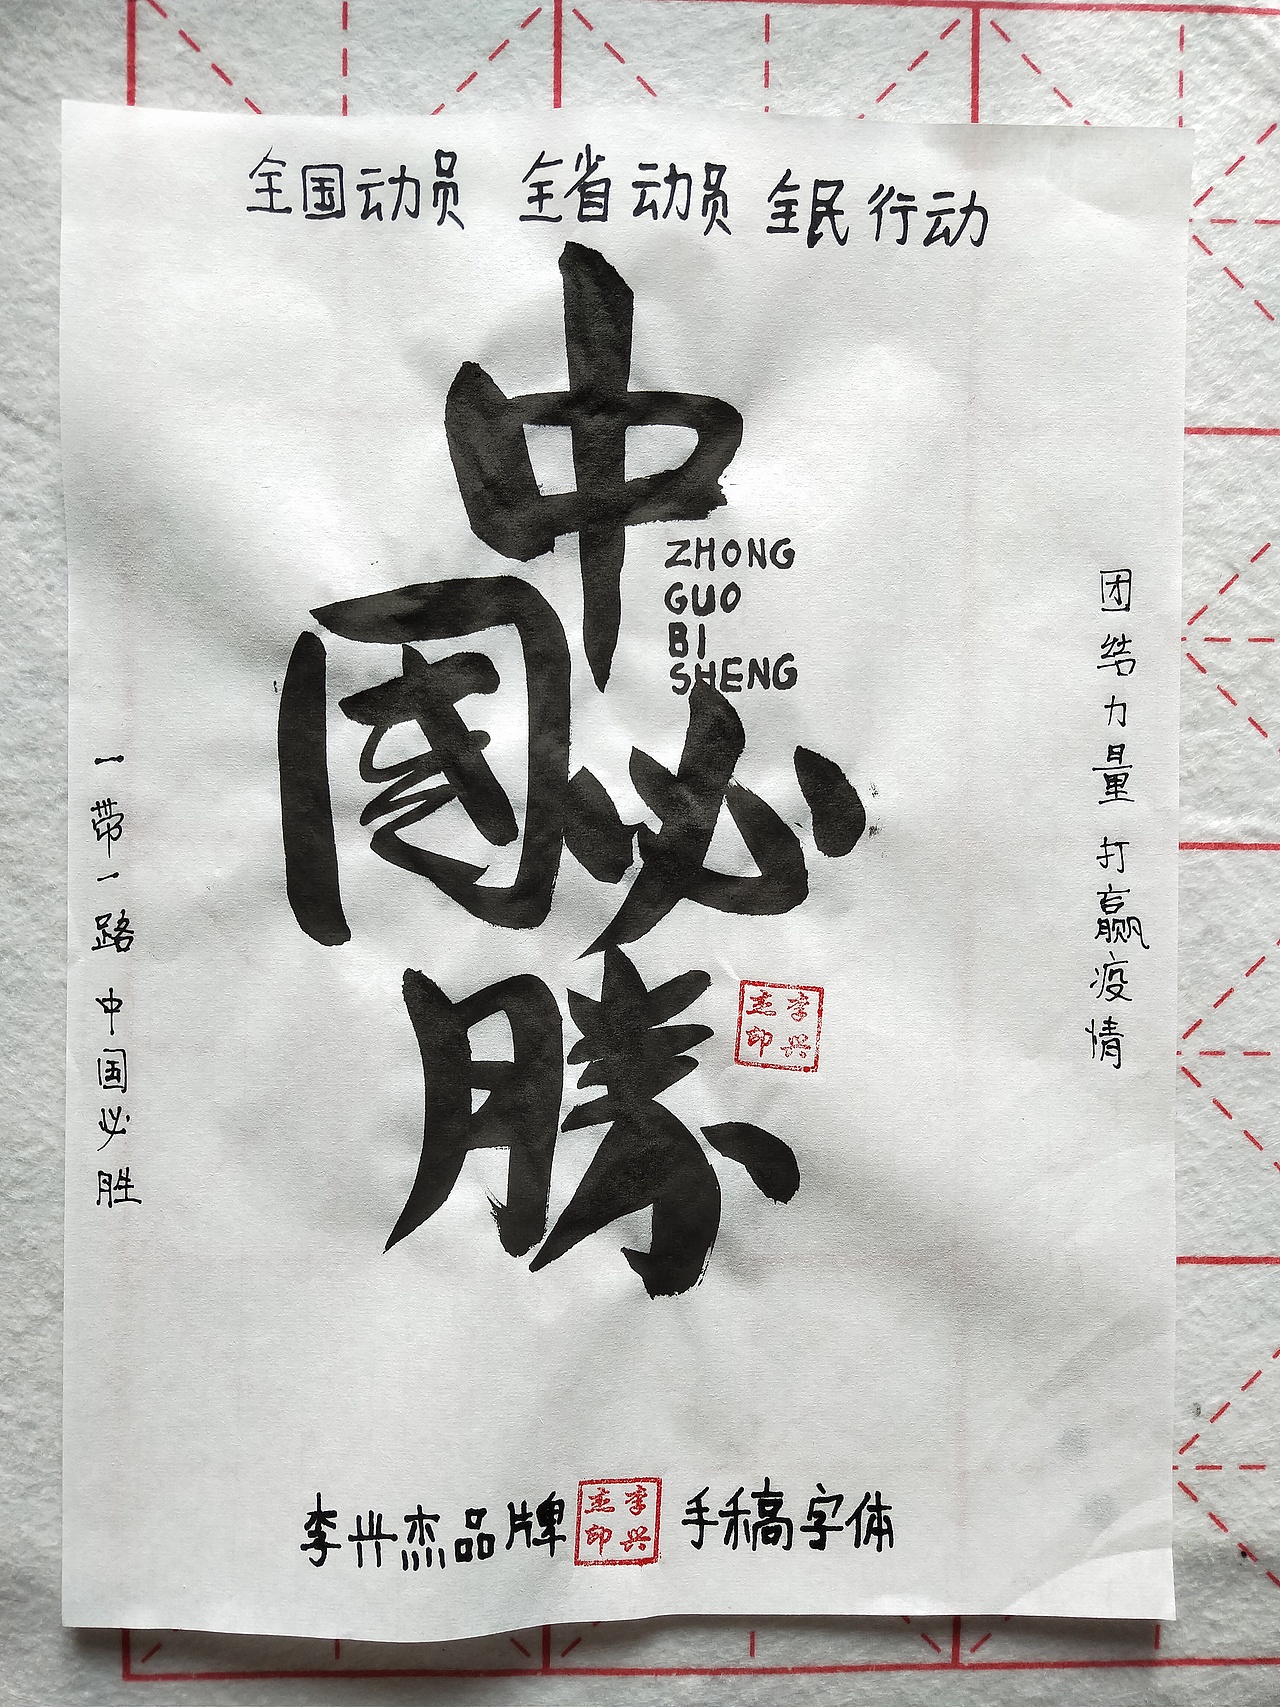 全国动员 全省动员 全民行动
中
國
必
勝
ZHONG
GUO
BI
SHENG
团结力量 打赢疫情
一带一路 中国必胜
李兴杰印
李兴杰品牌 李兴杰印 手稿字体